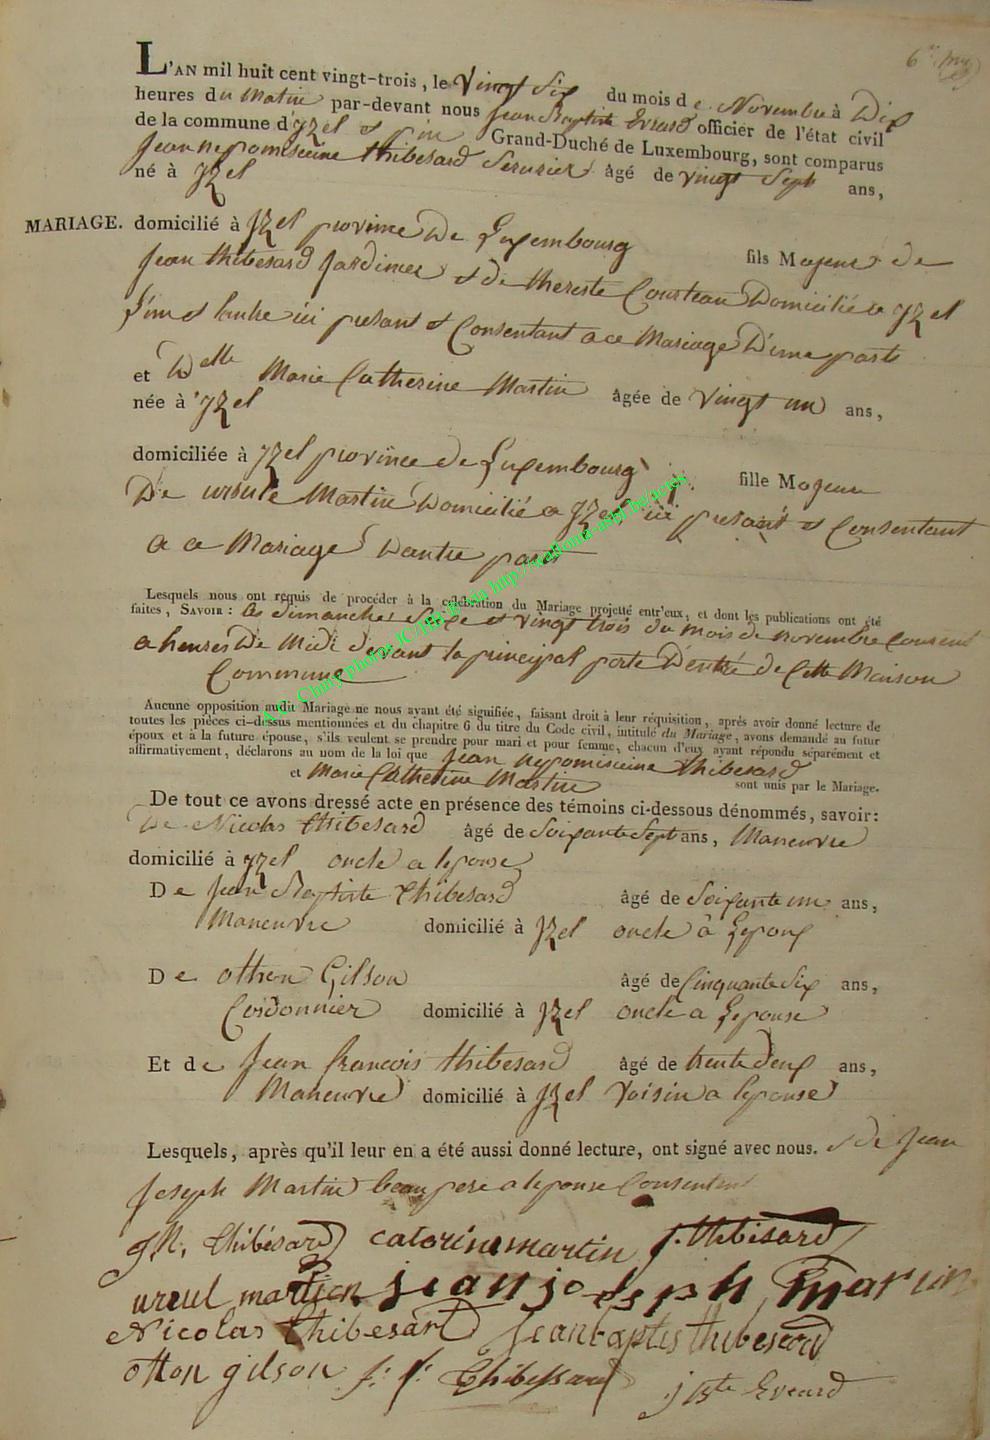 L'AN mil huit cent vingt-trois, le Vingt Six du mois de Novembre à Dix
heures du Matin par-devant nous Jean Baptiste Evrard officier de l'état civil
de la commune d'Yzel et pin Grand-Duché de Luxembourg, sont comparus
Jean nepomisceine thibesard Serurier âgé de vingt Sept ans,
né à Yzel
MARIAGE. domicilié à Yzel province De Luxembourg fils Majeur de
Jean thibesard Jardinier et de therese Courteau Domicilié a Yzel
L'un et lautre ici presant et Consentant a ce Mariage D'une parts
et Delle Marie Catherine Martin âgée de vingt un ans,
née à Yzel
domiciliée à Yzel province de Luxembourg fille Majeur
De ursule Martin Domicilié a Yzel ici presant et Consentant
a ce Mariage Dautre part
Lesquels nous ont requis de procéder à la célébration du Mariage projetté entr'eux, et dont les publications ont été
faites, SAVOIR : les dimanches Seize et vingt trois du mois de novembre Courent
a heures De Midi devant la principal porte D'entré de Cette Maison
Commune
Aucune opposition audit Mariage ne nous ayant été signifiée, faisant droit à leur réquisition, après avoir donné lecture de
toutes les pièces ci-dessus mentionnées et du chapitre 6 du titre du Code civil, intitulé du Mariage, avons demandé au futur
époux et à la future épouse, s'ils veulent se prendre pour mari et pour femme, chacun d'eux ayant répondu séparément et
affirmativement, déclarons au nom de la loi que Jean nepomisceine thibesard
et Marie Catherine Martin sont unis par le Mariage.
De tout ce avons dressé acte en présence des témoins ci-dessous dénommés, savoir:
De Nicolas thibesard âgé de Soixante Sept ans, Maneuvre
domicilié à Yzel oncle a lepouse
De Jean Baptiste thibesard âgé de Soixante un ans,
Maneuvre domicilié à Yzel oncle à Lepoux
De othon Gilson âgé de Cinquante Six ans,
Cordonnier domicilié à Yzel oncle a Lepouse
Et de Jean françois thibesard âgé de trente deux ans,
Maneuvre domicilié à Yzel Voisin a lepouse
Lesquels, après qu'il leur en a été aussi donné lecture, ont signé avec nous. et de Jean
Joseph Martin beau pere a lepouse Consentant
JN. thibésard catorine martin J. thibisard
ursul martien jean joseph martin
Nicolas thibesart Jean baptis thibesard
otton gilson J. f. Thibessard J Bte Evrard